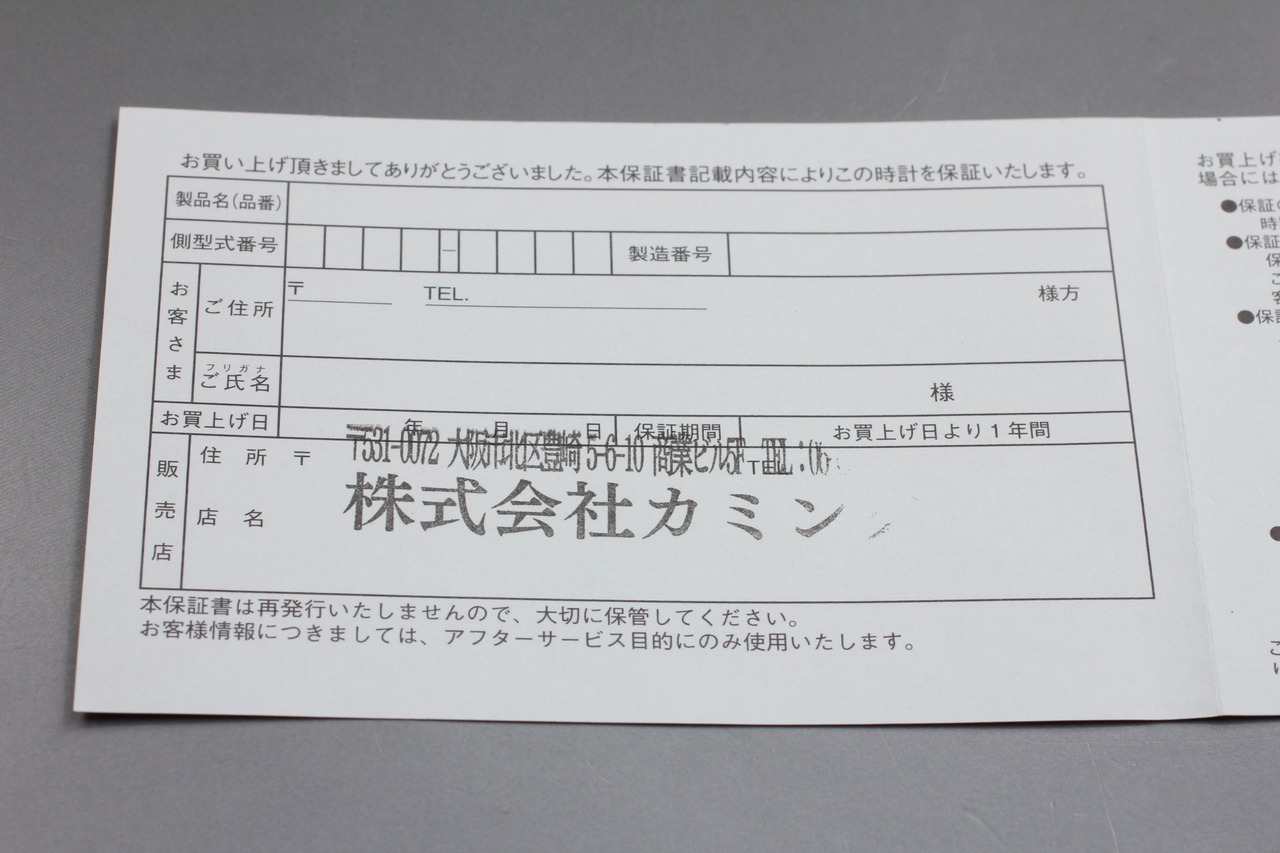 お買い上げ頂きましてありがとうございました。本保証書記載内容によりこの時計を保証いたします。
製品名(品番)
側型式番号 - 製造番号
お客さま
ご住所 〒 TEL. 様方
フリガナ
ご氏名 様
お買上げ日 年 月 日 保証期間 お買上げ日より1年間
販売店
住所 〒 TEL
〒531-0072 大阪市北区豊崎 5-6-10 商業ビル5F TEL:(06
店名
株式会社カミン
本保証書は再発行いたしませんので、大切に保管してください。
お客様情報につきましては、アフターサービス目的にのみ使用いたします。
お買上げ
場合には
●保証
時
●保証
保
●保